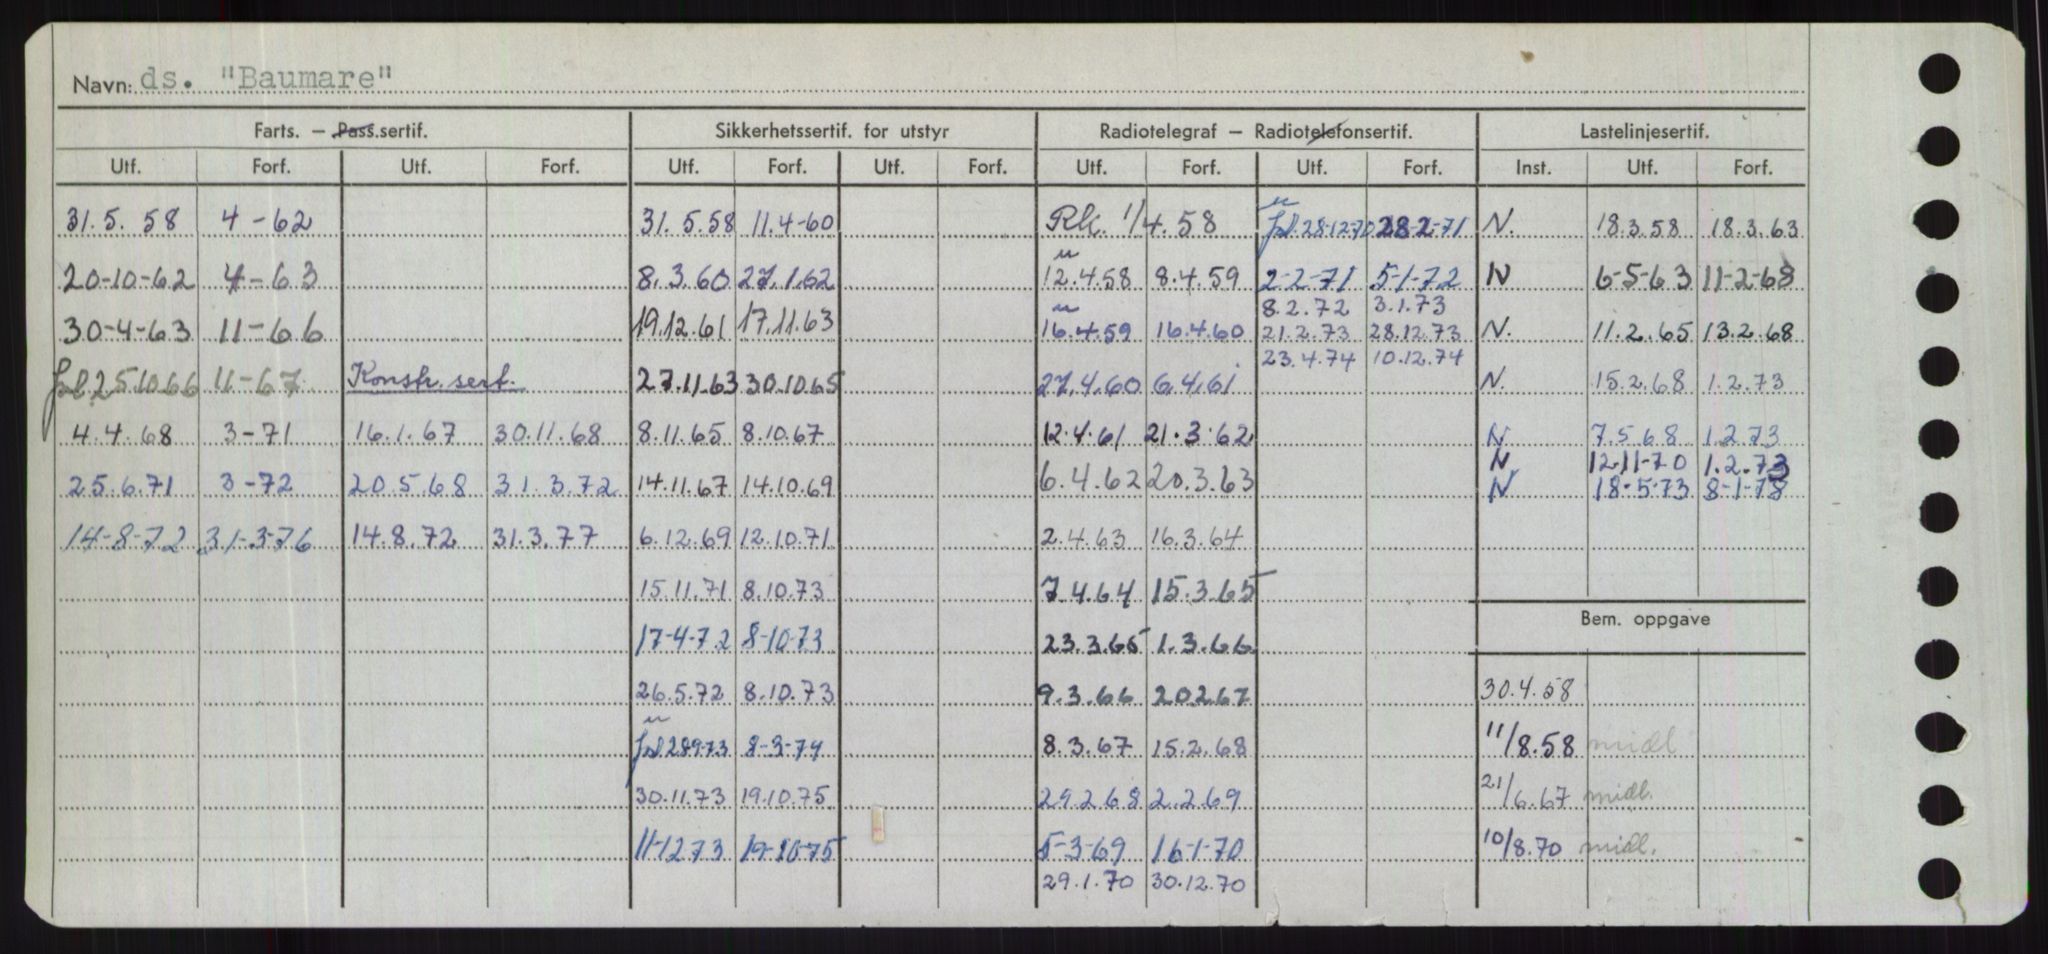 Navn: ds. "Baumare"
Farts. — Pass.sertif. Sikkerhetssertif. for utstyr Radiotelegraf — Radiotelefonsertif. Lastelinjesertif.
Utf. Forf. Utf. Forf. Utf. Forf. Utf. Forf. Utf. Forf. Utf. Forf. Inst. Utf. Forf.
31.5.58 4-62 31.5.58 11.4-60 Rk. 1/4.58 fol. 28-12-70 28-2-71 N. 18.3.58 18.3.63
20-10-62 4-63 8.3.60 27.1.62 12.4.58 8.4.59 2-2-71 5-1-72 N 6-5-63 11-2-68
8.2.72 3.1.73
30-4-63 11-66 19.12.61 17.11.63 16.4.59 16.4.60 21.2.73 28.12.73 N. 11.2.65 13.2.68
23.4.74 10.12.74
fol 25.10.66 11-67 Konstr. sert. 27.11.63 30.10.65 27.4.60 6.4.61 N. 15.2.68 1.2.73
4.4.68 3-71 16.1.67 30.11.68 8.11.65 8.10.67 12.4.61 21.3.62 N 7.5.68 1.2.73
N 12-11-70 1.2.73
25.6.71 3-72 20.5.68 31.3.72 14.11.67 14.10.69 6.4.62 20.3.63 N 18.5.73 8-1-78
14-8-72 31-3-76 14.8.72 31.3.77 6.12.69 12.10.71 2.4.63 16.3.64
15.11.71 8.10.73 7.4.64 15.3.65
Bem. oppgave
17-4-72 8-10-73 23.3.65 1.3.66
26.5.72 8.10.73 9.3.66 20.2.67 30.4.58
fol 28.9.73 8-3-74 8.3.67 15.2.68 11/8.58 midl
30.11.73 19.10.75 29.2.68 2.2.69 21/6.67 midl.
11-12.73 19-10-75 5-3-69 16-1-70 10/8.70 midl.
29.1.70 30.12.70